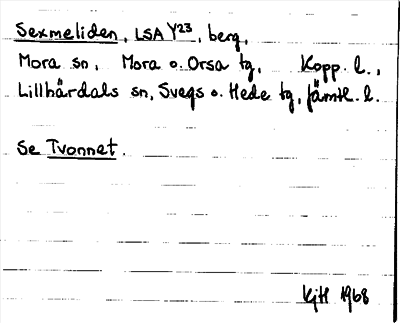 Sexmeliden, LSA Y23, berg,
Mora sn, Mora o. Orsa tg, Kopp. l.,
Lillhärdals sn, Svegs o. Hede tg, Jämtl. l.
Se Tvonnet.
KjH 1968